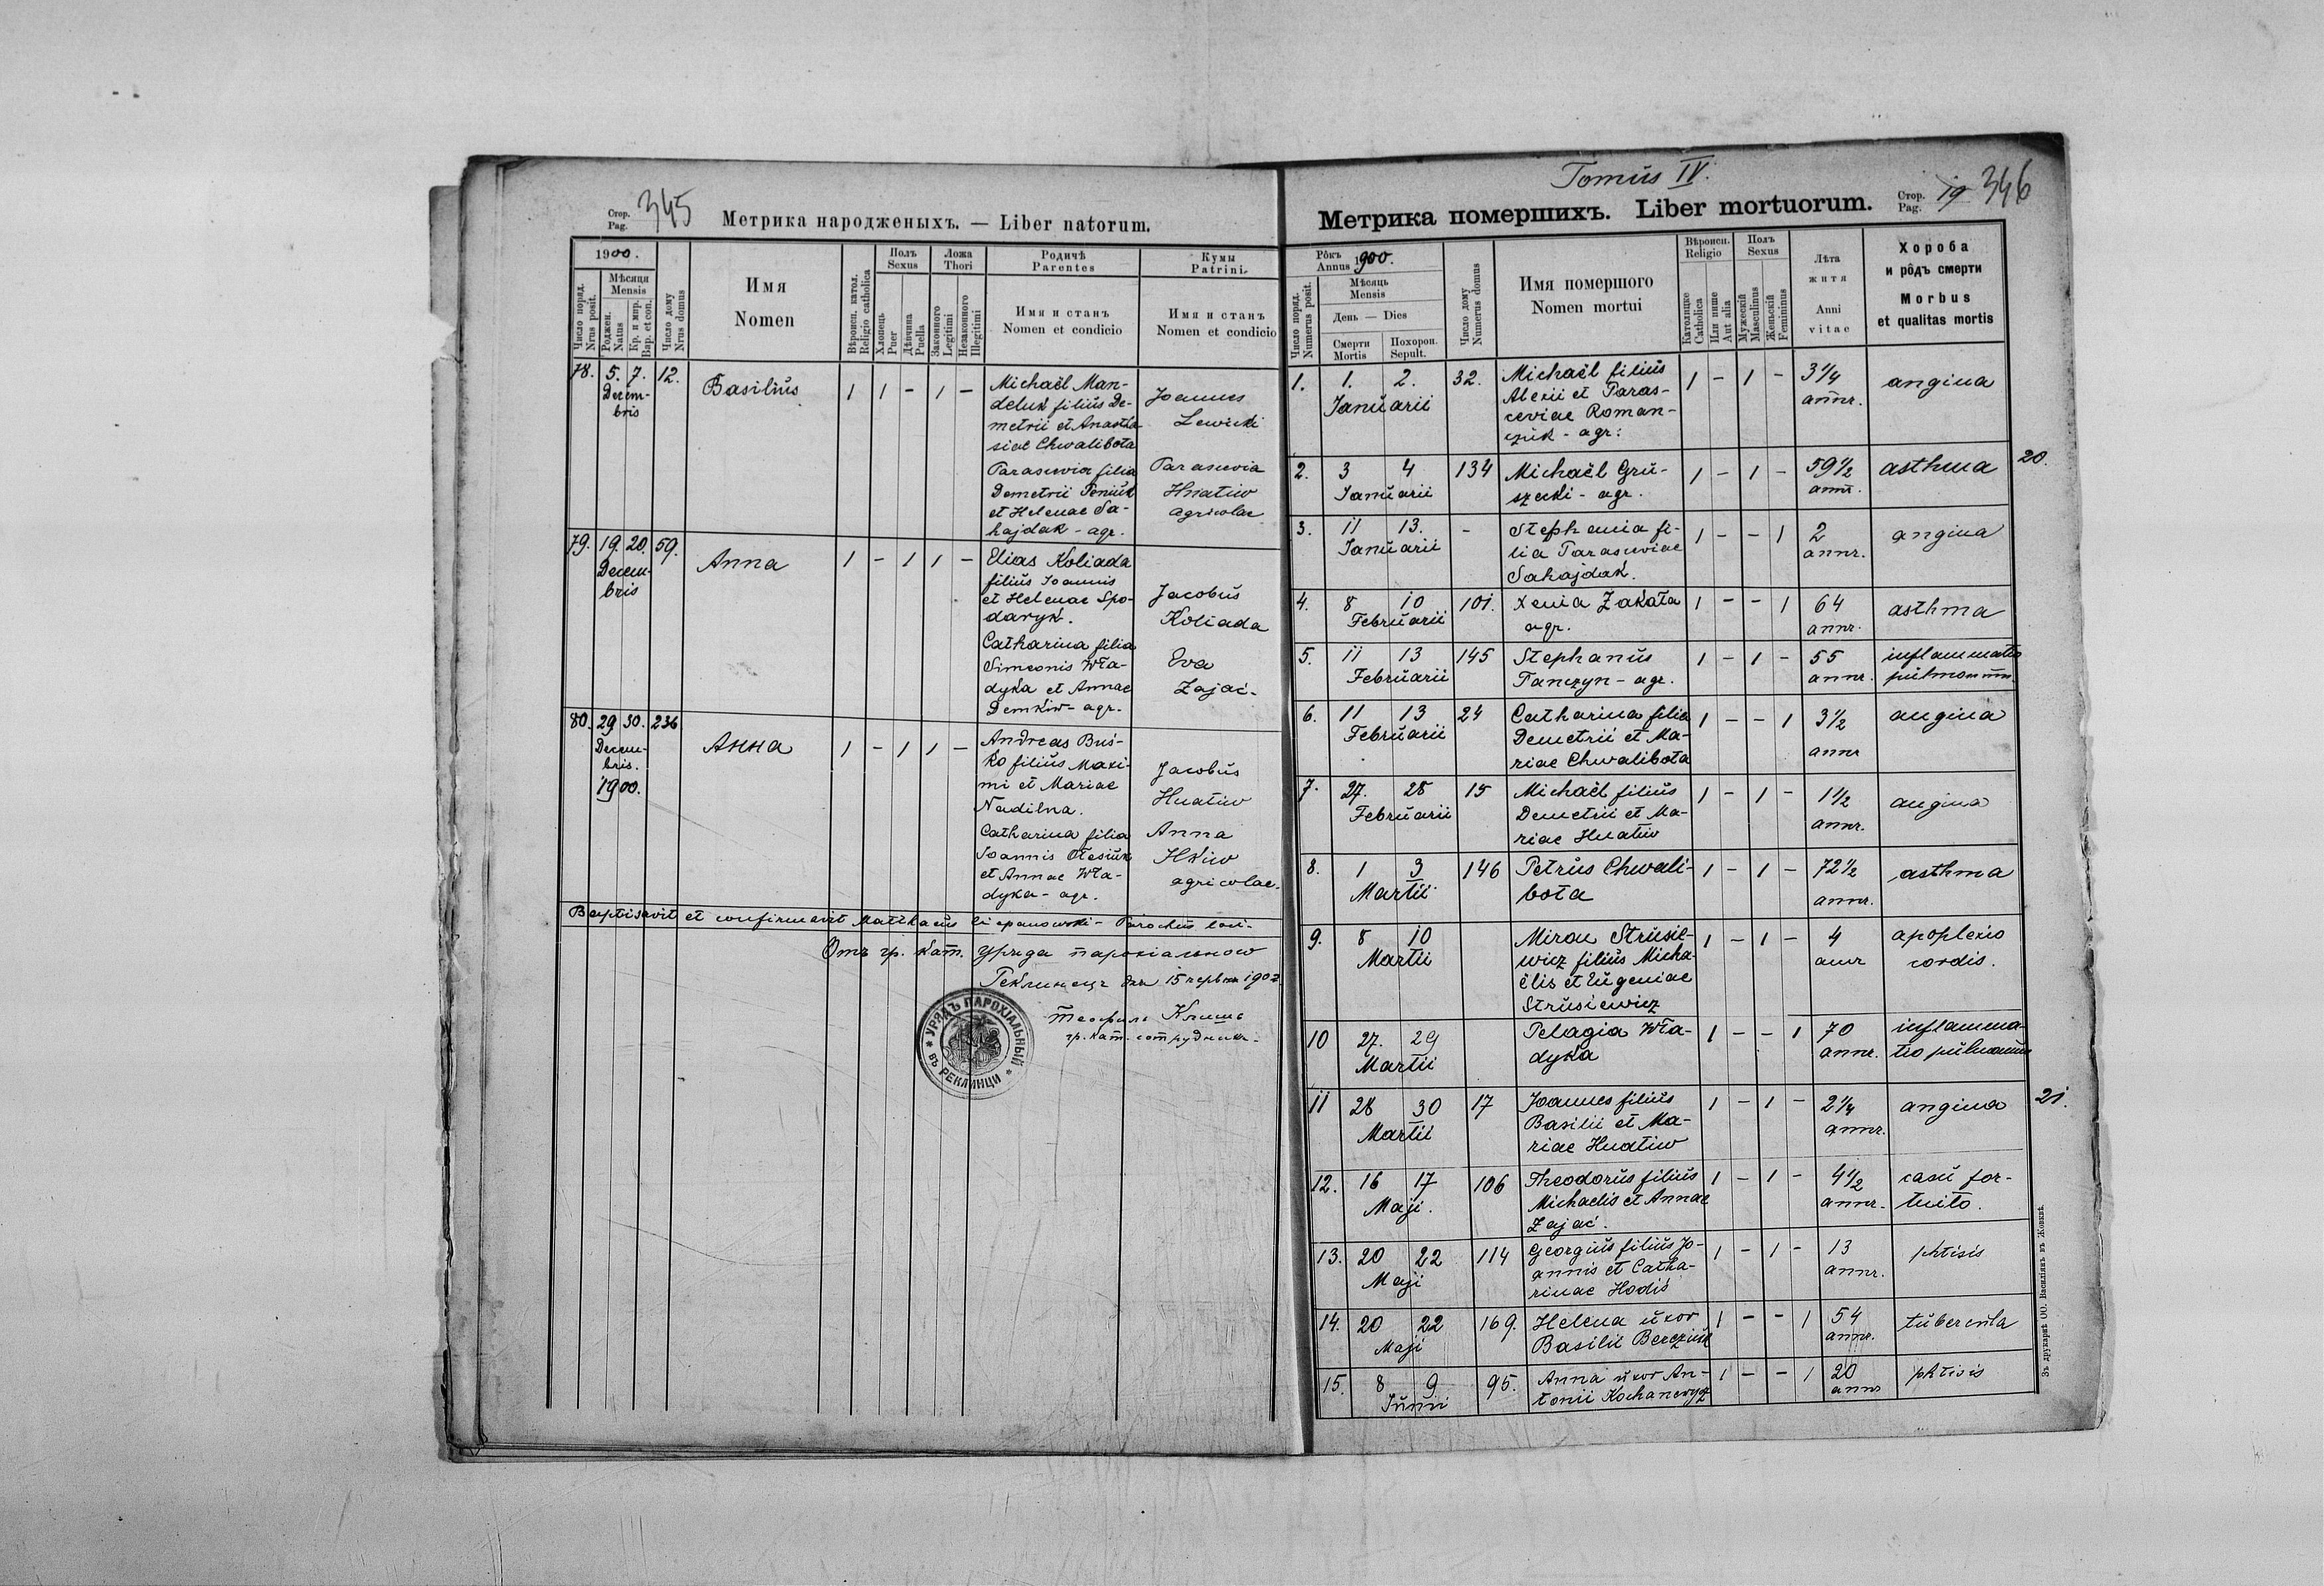 Стор.
Pag.
345
Метрика народженыхъ. — Liber natorum.
1900.
Число поряд.
Nrus posit.
Мѣсяця
Mensis
Роджен.
Natus
Кр. и мир.
Bap. et con.
Число дому
Nrus domus
Имя
Nomen
Вѣроисп. катол.
Religio catholica
Полъ
Sexus
Хлопець
Puer
Дѣвчина
Puella
Ложа
Thori
Законного
Legitimi
Незаконного
Illegitimi
Родичѣ
Parentes
Имя и станъ
Nomen et condicio
Кумы
Patrini
Имя и станъ
Nomen et condicio
78. 5. 7. 12.
Decem-
bris
Basilius
1 1 - 1 -
Michaël Man-
deluk filius De-
metrii et Anasta-
siae Chwalibota
Parascevia filia
Demetrii Peniuk
et Helenae Sa-
hajdak - agr.
Joannes
Lewicki
Parascevia
Hnatiw
agricolae
79. 19. 20. 59.
Decem-
bris
Anna
1 - 1 1 -
Elias Koliada
filius Joannis
et Helenae Spo-
daryk.
Catharina filia
Simeonis Wła-
dyka et Annae
Demkiw - agr.
Jacobus
Koliada
Eva
Zajać.
80. 29 30. 236
Decem-
bris.
1900.
Анна
1 - 1 1 -
Andreas Buś-
ko filius Maxi-
mi et Mariae
Nadilna.
Catharina filia
Joannis Olesiuk
et Annae Wła-
dyka - agr.
Jacobus
Hnatiw
Anna
Ilkiw
agricolae.
Baptisavit et confirmavit Matthaeus Ciepanowski - Parochus loci -
Отъ гр. кат. уряда парохіяльного
Реклинецъ дня 15 червня 190
Теофилъ
гр. кат. сотрудникъ.
* УРЯДЪ ПАРОХІАЛЬНЫЙ *
ВЪ РЕКЛИНЦИ
Tomus IV.
Метрика помершихъ. Liber mortuorum.
Стор.
Pag.
19 346
Рôкъ
Annus 1900.
Число поряд.
Numerus posit.
Мѣсяць
Mensis
День — Dies
Смерти
Mortis
Похорон.
Sepult.
Число дому
Numerus domus
Имя помершого
Nomen mortui
Вѣроисп.
Religio
Католицке
Catholica
Или инше
Aut alia
Полъ
Sexus
Мужескій
Masculinus
Женьскій
Femininus
Лѣта
житя
Anni
vitae
Хороба
и рôдъ смерти
Morbus
et qualitas mortis
1. 1. 2. 32.
Januarii
Michaël filius
Alexii et Paras-
ceviae Roman-
czuk - agr:
1 - 1 -
3 1/4
annr.
angina
2. 3 4 134
Januarii
Michaël Gru-
szecki - agr.
1 - 1 -
59 1/2
annr.
asthma
20.
3. 11 13. -
Januarii
Stephania fi-
lia Parasceviae
Sahajdak.
1 - - 1
2
annr.
angina
4. 8 10 101.
Februarii
Xenia Zakała
agr.
1 - - 1
64
annr.
asthma
5. 11 13 145
Februarii
Stephanus
Panczyn - agr.
1 - 1 -
55
annr.
inflammatio
pulmonum.
6. 11 13 24
Februarii
Catharina filia
Demetrii et Ma-
riae Chwalibota
1 - - 1
3 1/2
annr
angina
7. 27. 28 15
Februarii
Michaël filius
Demetrii et Ma-
riae Hnatiw
1 - 1 -
1 1/2
annr.
angina
8. 1 3 146
Martii
Petrus Chwali-
bota
1 - 1 -
72 1/2
annr.
asthma
9. 8 10
Martii
Miron Strusie-
wicz filius Micha-
ëlis et Eugeniae
Strusiewicz
1 - 1 -
4
annr
apoplexio
cordis.
10 27. 29
Martii
Pelagia Wła-
dyka
1 - - 1
70
annr.
inflamma-
tio pulmonum
11 28 30 17
Martii
Joannes filius
Basilii et Ma-
riae Hnatiw
1 - 1 -
2 1/4
annr.
angina
21.
12. 16 17 106
Maji.
Theodorus filius
Michaelis et Annae
Zajać.
1 - 1 -
4 1/2
annr.
casu for-
tuito.
13. 20 22 114
Maji
Georgius filius Jo-
annis et Catha-
rinae Hodiś
1 - 1 -
13
annr.
phtisis
14. 20 22 169.
Maji
Helena uxor
Basilii Bereziuk
1 - - 1
54
annr.
tubercula
15. 8 9 95.
Junii
Anna uxor An-
tonii Kochanewycz
1 - - 1
20
annr
phtisis
Зъ друкарнѣ ОО. Василіянъ въ Жовквѣ.